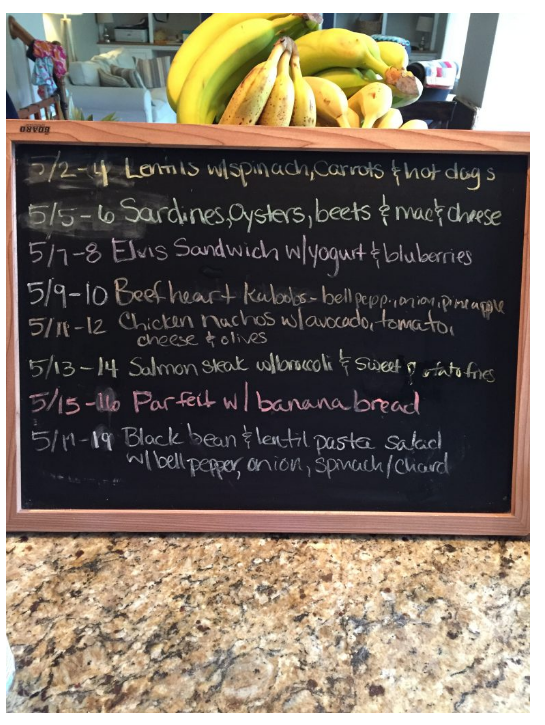 5/2-4 Lentils w/spinach, Carrots & hot dogs
5/5-6 Sardines, Oysters, beets & mac & cheese
5/7-8 Elvis Sandwich w/yogurt & bluberries
5/9-10 Beef heart Kabobs - bell pepp., onion, pineapple
5/11-12 Chicken nachos w/avocado, tomato,
cheese & olives
5/13-14 Salmon steak w/broccoli & sweet potato fries
5/15-16 Parfeit w/ banana bread
5/17-19 Black bean & lentil pasta salad
w/ bell pepper, onion, spinach/chard